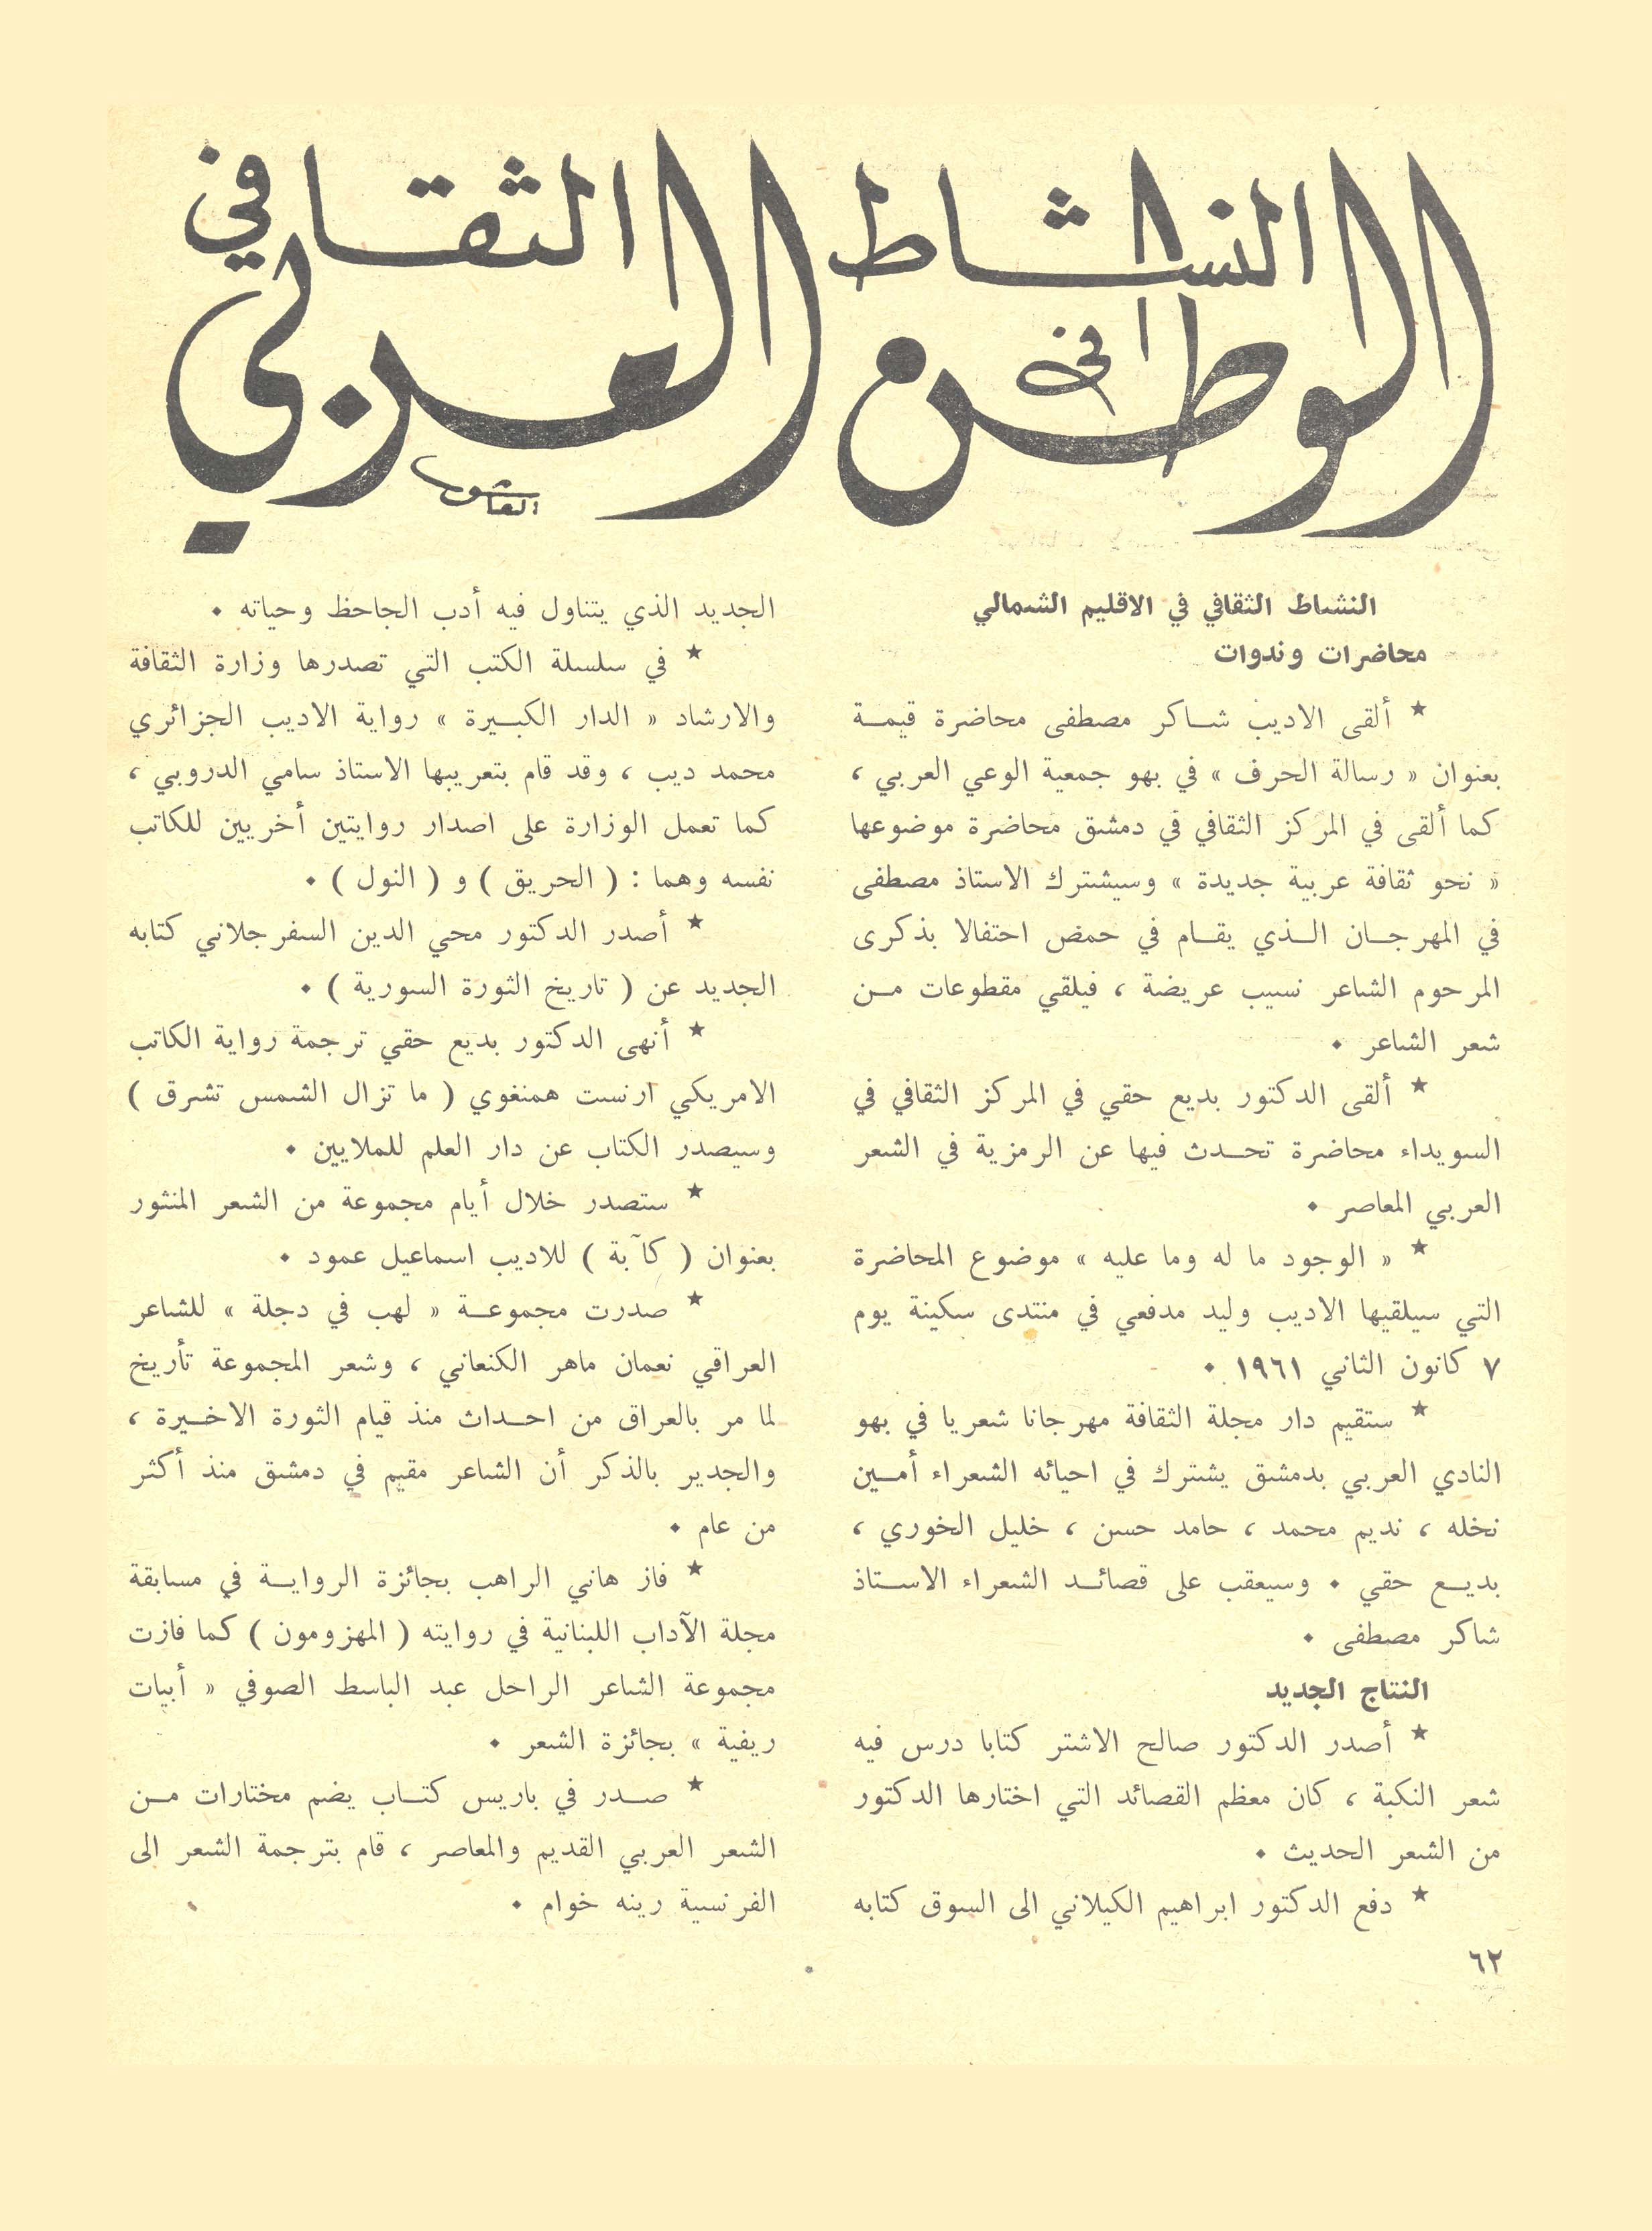 النشاط الثقافي
في
الوطن العربي
النشاط الثقافي في الاقليم الشمالي
محاضرات وندوات
★ ألقى الاديب شاكر مصطفى محاضرة قيمة
بعنوان « رسالة الحرف » في بهو جمعية الوعي العربي ،
كما ألقى في المركز الثقافي في دمشق محاضرة موضوعها
« نحو ثقافة عربية جديدة » وسيشترك الاستاذ مصطفى
في المهرجان الذي يقام في حمص احتفالا بذكرى
المرحوم الشاعر نسيب عريضة ، فيلقي مقطوعات من
شعر الشاعر ٠
★ ألقى الدكتور بديع حقي في المركز الثقافي في
السويداء محاضرة تحدث فيها عن الرمزية في الشعر
العربي المعاصر ٠
★ « الوجود ما له وما عليه » موضوع المحاضرة
التي سيلقيها الاديب وليد مدفعي في منتدى سكينة يوم
٧ كانون الثاني ١٩٦١ ٠
★ ستقيم دار مجلة الثقافة مهرجانا شعريا في بهو
النادي العربي بدمشق يشترك في احيائه الشعراء أمين
نخله ، نديم محمد ، حامد حسن ، خليل الخوري ،
بديع حقي ٠ وسيعقب على قصائد الشعراء الاستاذ
شاكر مصطفى ٠
النتاج الجديد
★ أصدر الدكتور صالح الاشتر كتابا درس فيه
شعر النكبة ، كان معظم القصائد التي اختارها الدكتور
من الشعر الحديث ٠
★ دفع الدكتور ابراهيم الكيلاني الى السوق كتابه
الجديد الذي يتناول فيه أدب الجاحظ وحياته ٠
★ في سلسلة الكتب التي تصدرها وزارة الثقافة
والارشاد « الدار الكبيرة » رواية الاديب الجزائري
محمد ديب ، وقد قام بتعريبها الاستاذ سامي الدروبي ،
كما تعمل الوزارة على اصدار روايتين أخريين للكاتب
نفسه وهما : ( الحريق ) و ( النول ) ٠
★ أصدر الدكتور محي الدين السفرجلاني كتابه
الجديد عن ( تاريخ الثورة السورية ) ٠
★ أنهى الدكتور بديع حقي ترجمة رواية الكاتب
الامريكي ارنست همنغوي ( ما تزال الشمس تشرق )
وسيصدر الكتاب عن دار العلم للملايين ٠
★ ستصدر خلال أيام مجموعة من الشعر المنثور
بعنوان ( كآبة ) للاديب اسماعيل عمود ٠
★ صدرت مجموعة « لهب في دجلة » للشاعر
العراقي نعمان ماهر الكنعاني ، وشعر المجموعة تأريخ
لما مر بالعراق من احداث منذ قيام الثورة الاخيرة ،
والجدير بالذكر أن الشاعر مقيم في دمشق منذ أكثر
من عام ٠
★ فاز هاني الراهب بجائزة الرواية في مسابقة
مجلة الآداب اللبنانية في روايته ( المهزومون ) كما فازت
مجموعة الشاعر الراحل عبد الباسط الصوفي « أبيات
ريفية » بجائزة الشعر ٠
★ صدر في باريس كتاب يضم مختارات من
الشعر العربي القديم والمعاصر ، قام بترجمة الشعر الى
الفرنسية رينه خوام ٠
٦٢